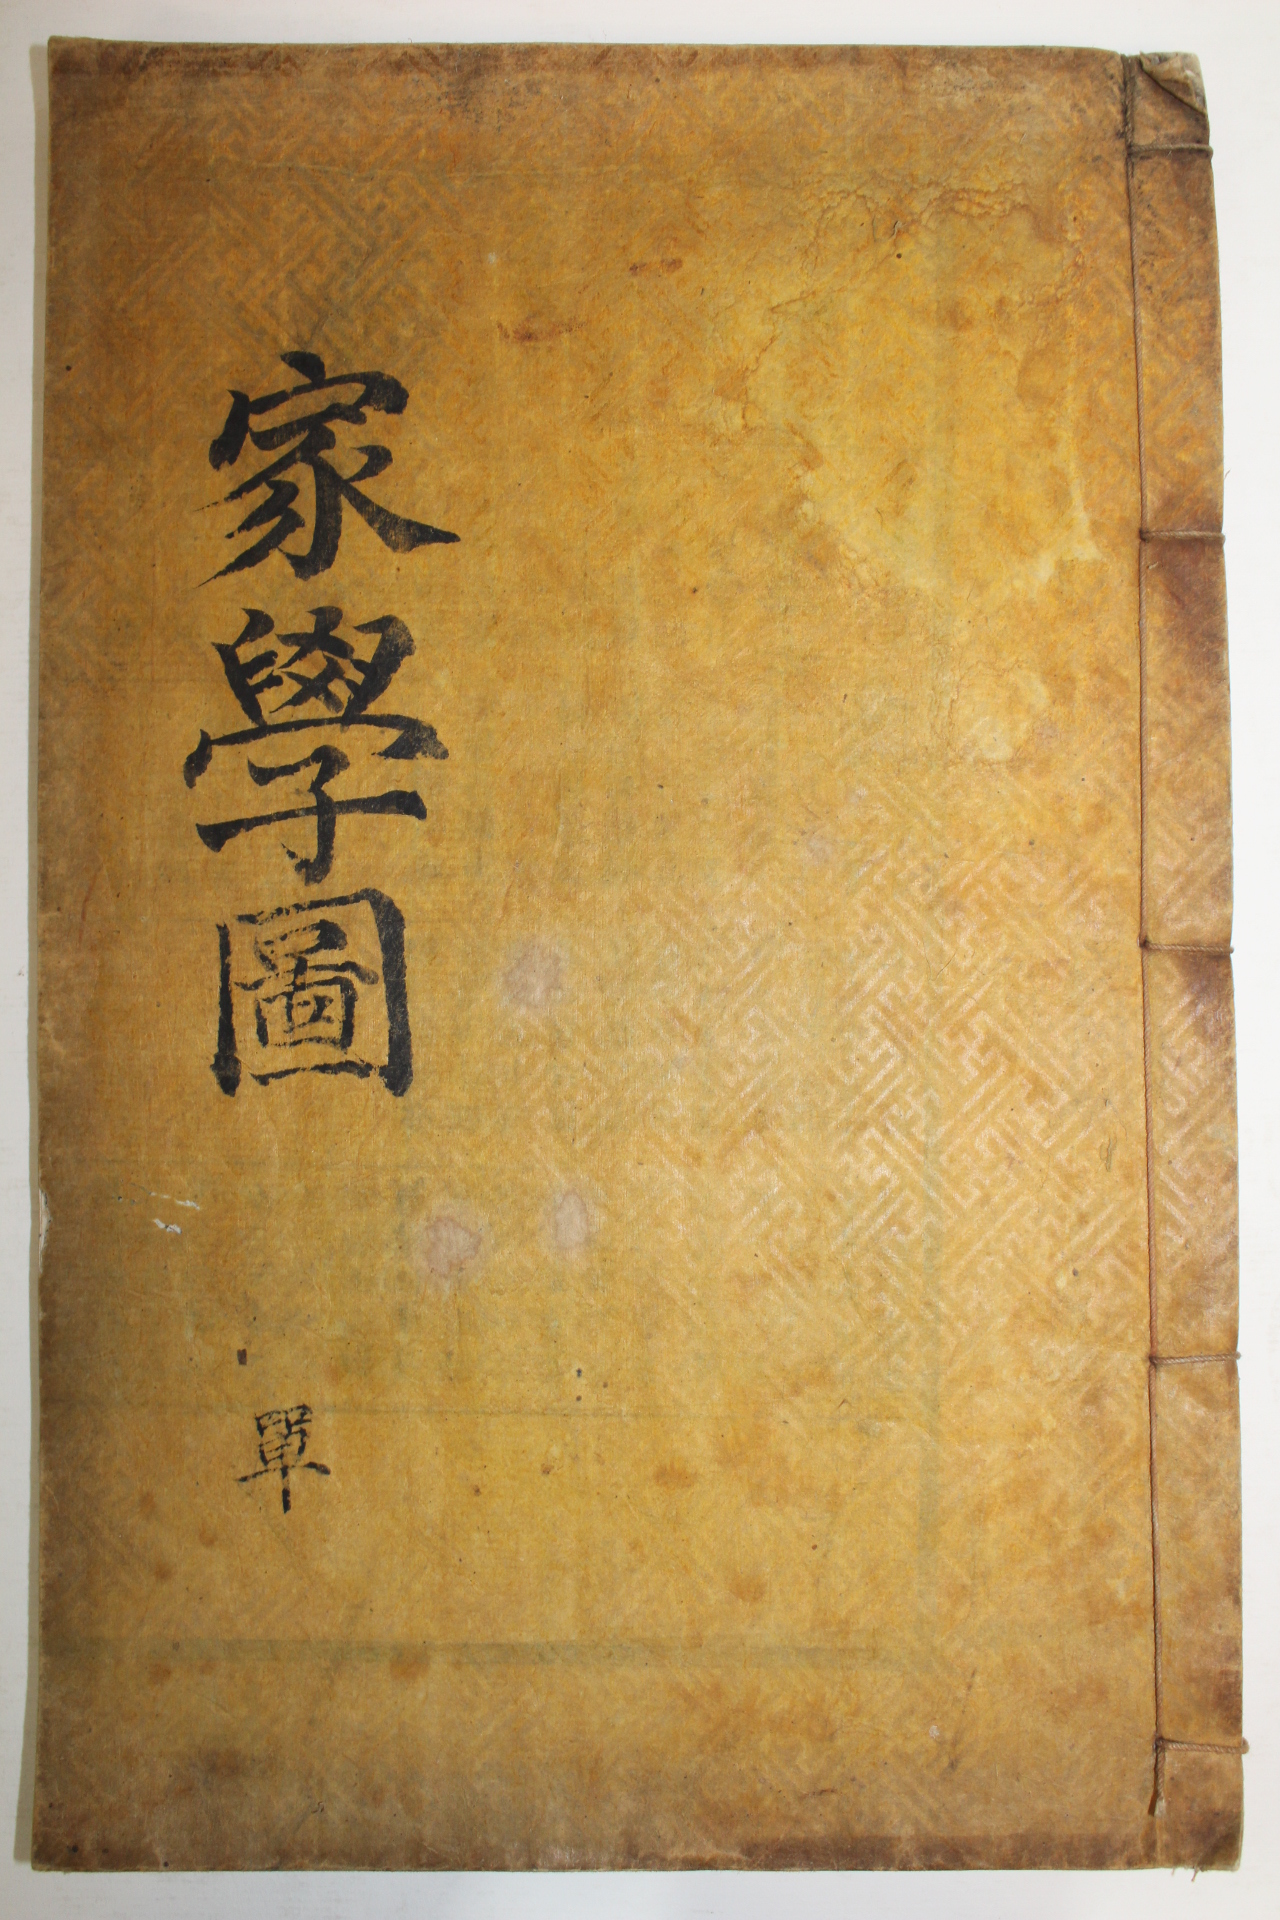 家學圖
單